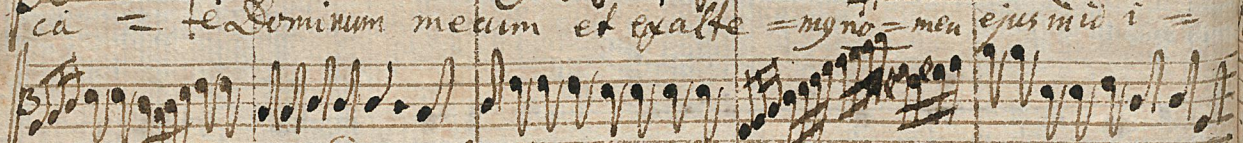 ca = te Dominum mecum et exalte = my no = men ejus in id i =